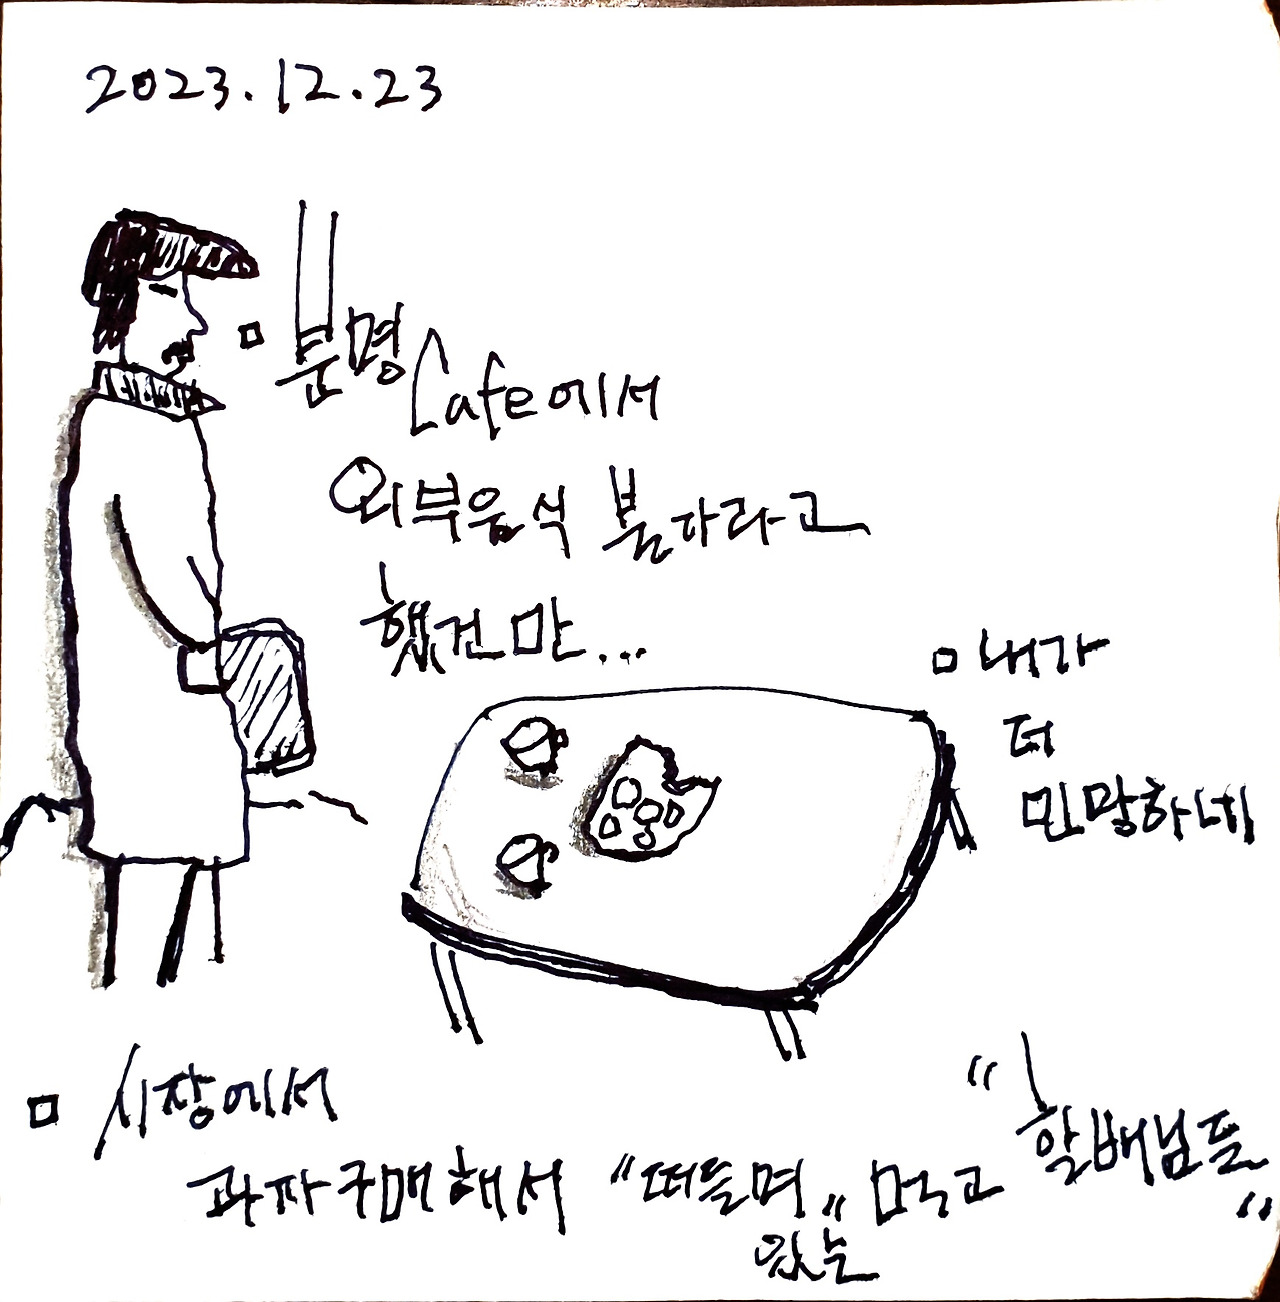 2023.12.23
▫ 분명 Cafe에서
외부음식 불가라고
했건만...
▫ 내가
더
민망하네
▫ 시장에서
과자구매해서 "떠들며" 먹고
있는
"할배님들"